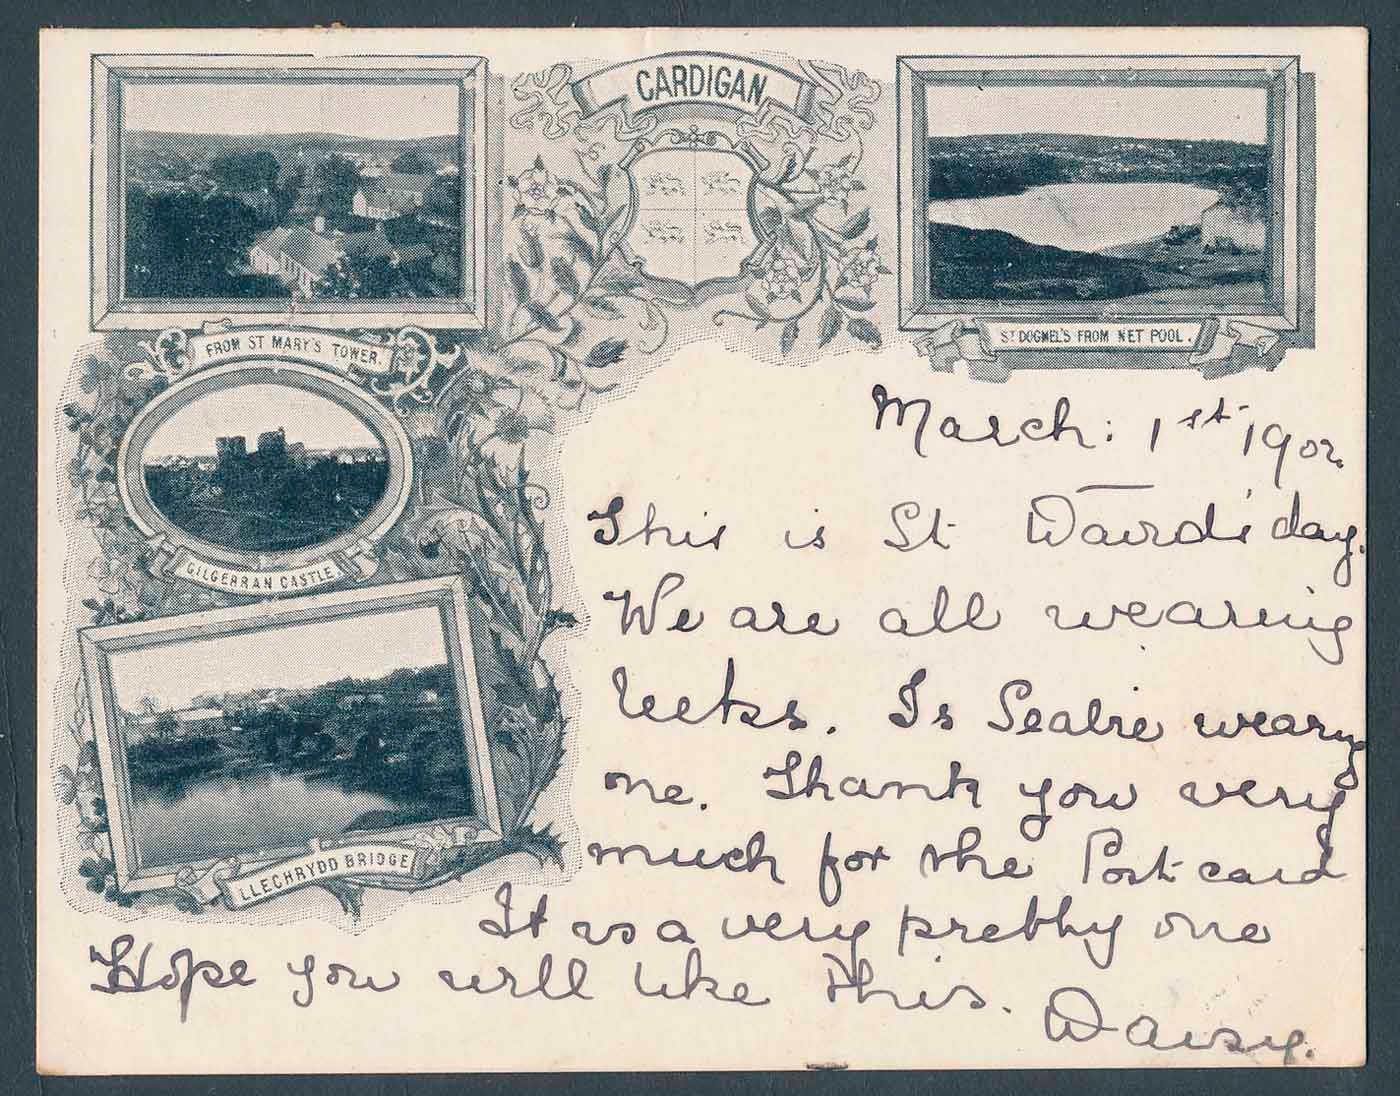 CARDIGAN
FROM ST MARY'S TOWER.
ST DOGMEL'S FROM NET POOL.
CILGERRAN CASTLE
LLECHRYDD BRIDGE
March: 1st 1902.
This is St David's day.
We are all wearing
leeks. Is wearing
one. Thank you very
much for the Post-card
It is a very pretty one
Hope you will like this.
Daisy.